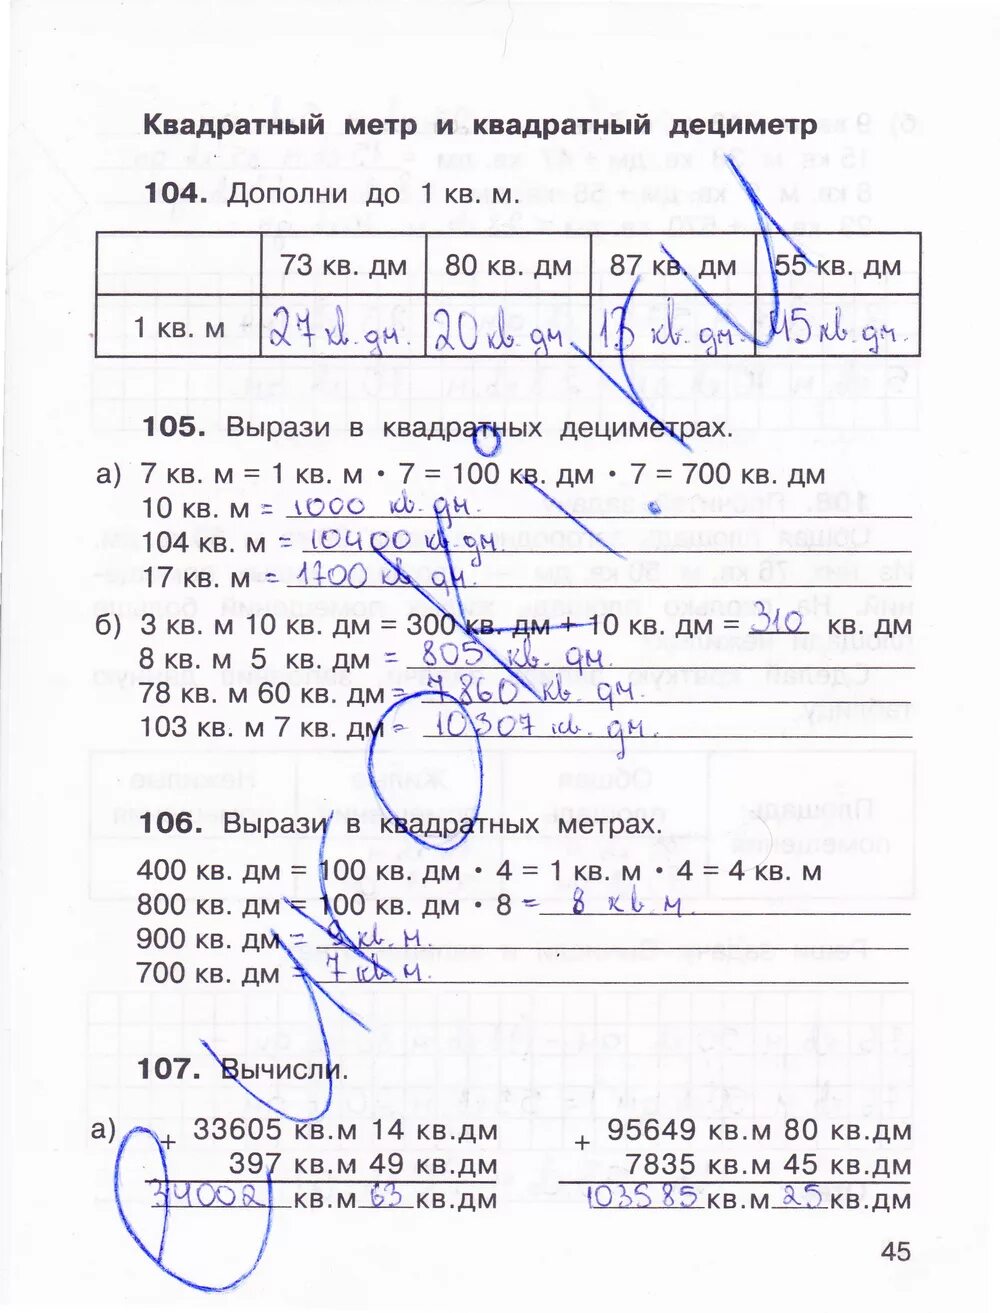 Квадратный метр и квадратный дециметр
104. Дополни до 1 кв. м.
73 кв. дм 80 кв. дм 87 кв. дм 55 кв. дм
1 кв. м 27 кв. дм. 20 кв. дм 13 кв. дм. 45 кв. дм.
105. Вырази в квадратных дециметрах.
а) 7 кв. м = 1 кв. м · 7 = 100 кв. дм · 7 = 700 кв. дм
10 кв. м = 1000 кв. дм.
104 кв. м = 10400 кв. дм.
17 кв. м = 1700 кв. дм.
б) 3 кв. м 10 кв. дм = 300 кв. дм + 10 кв. дм = 310 кв. дм
8 кв. м 5 кв. дм = 805 кв. дм.
78 кв. м 60 кв. дм = 7860 кв. дм.
103 кв. м 7 кв. дм = 10307 кв. дм.
106. Вырази в квадратных метрах.
400 кв. дм = 100 кв. дм · 4 = 1 кв. м · 4 = 4 кв. м
800 кв. дм = 100 кв. дм · 8 = 8 кв. м.
900 кв. дм = 9 кв. м.
700 кв. дм = 7 кв. м.
107. Вычисли.
а) + 33605 кв.м 14 кв.дм + 95649 кв.м 80 кв.дм
397 кв.м 49 кв.дм 7835 кв.м 45 кв.дм
34002 кв.м 63 кв.дм 103585 кв.м 25 кв.дм
45